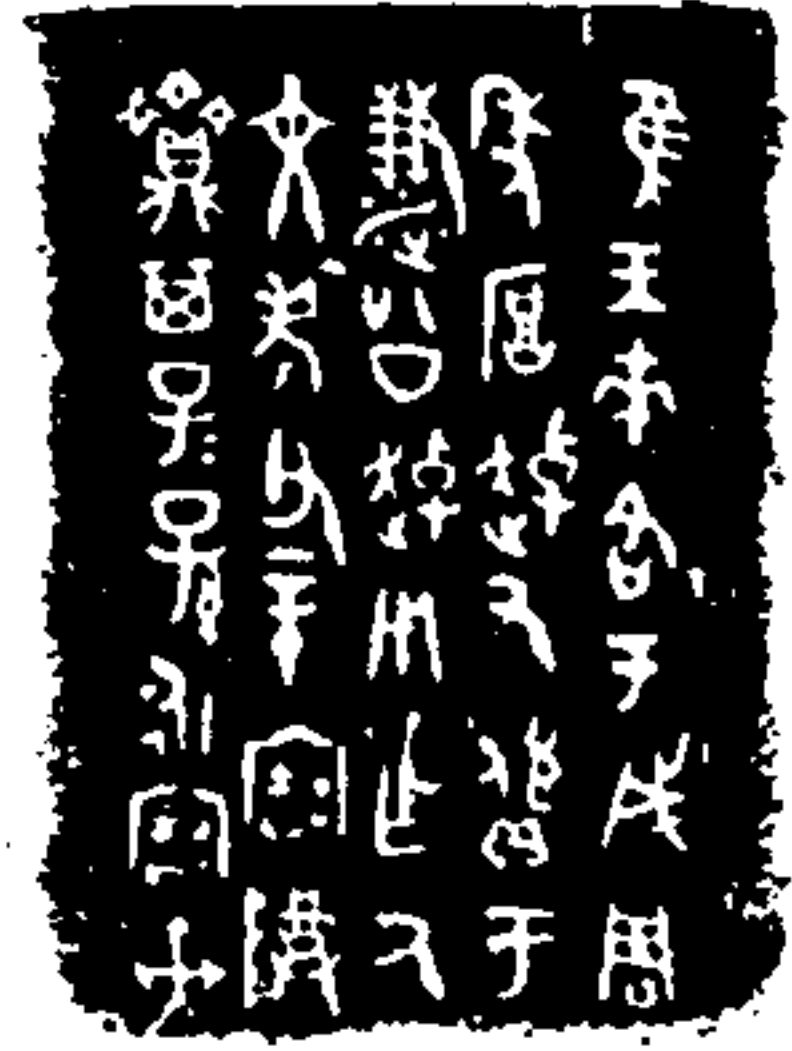 隹王來各于成周
年厚趠又于
溓公趠用乍氒
文考父辛寶尊
齍其子子孫孫永寶朿